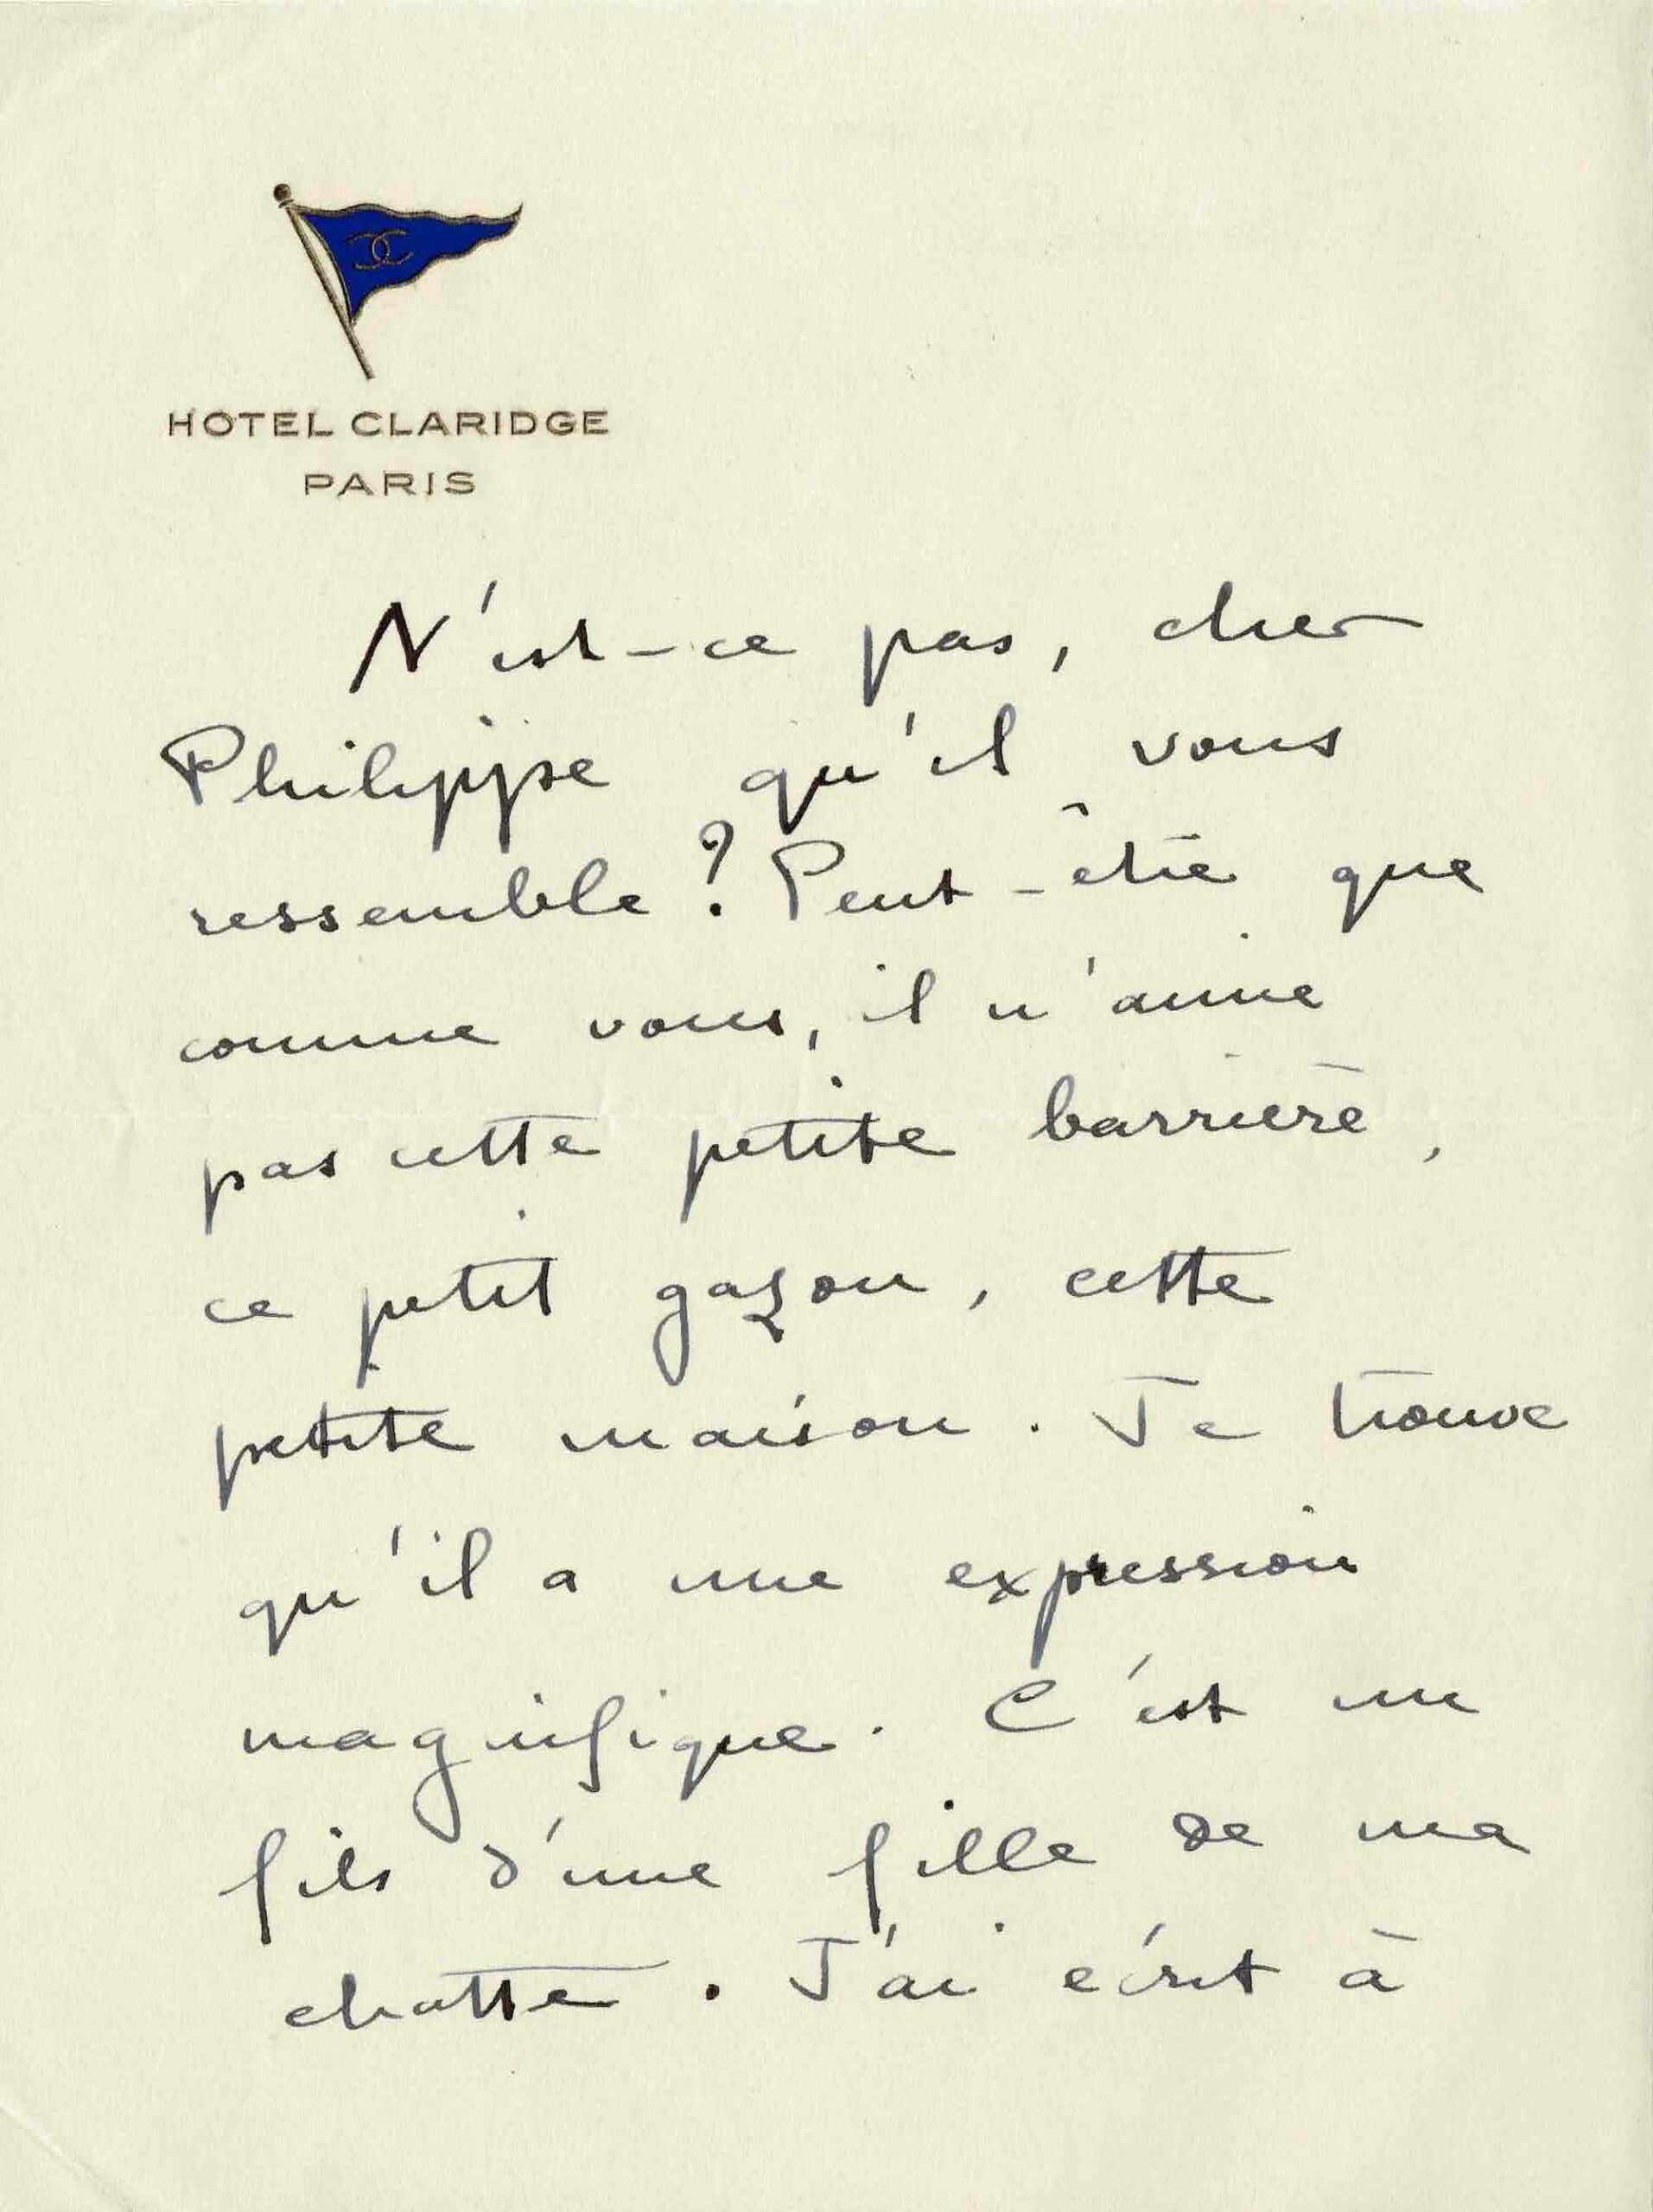 HOTEL CLARIDGE
PARIS
N'est-ce pas, cher
Philippe qu'il vous
ressemble ? Peut-être que
comme vous, il n'aime
pas cette petite barrière,
ce petit gazon, cette
petite maison. Je trouve
qu'il a une expression
magnifique. C'est un
fils d'une fille de ma
chatte. J'ai écrit à